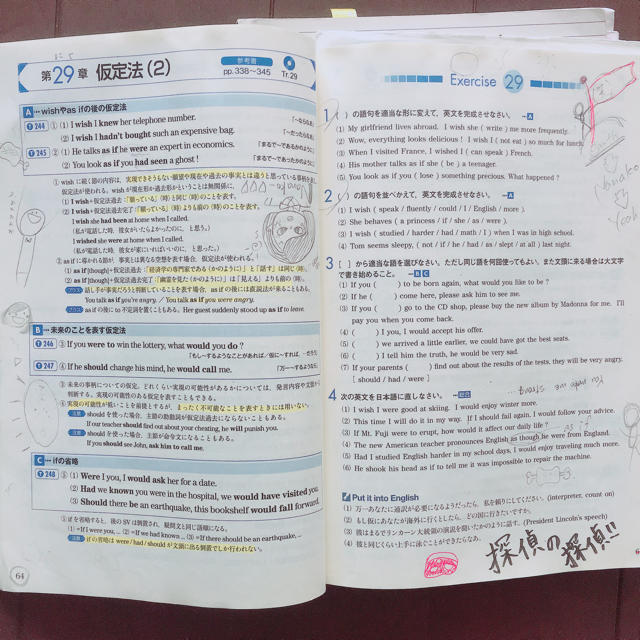 第29章 仮定法(2)
参考書
pp.338〜345
Tr.29
A…wishやas ifの後の仮定法
244 ① (1) I wish I knew her telephone number.
(2) I wish I hadn't bought such an expensive bag.
245 ② (1) He talks as if he were an expert in economics.
(2) You look as if you had seen a ghost!
① wishに続く節の内容は、実現できそうもない願望や現在や過去の事実とは違うと思っている事柄を表し、
(1) I wish+仮定法過去「願っている」(時)と同じ(時)のことを表す。
(2) I wish+仮定法過去完了「願っている」(時)よりも前の(時)のことを表す。
I wish she had been at home when I called.
(私が電話した時、彼女がいたらよかったのに、と思う。)
I wished she were at home when I called.
(私が電話した時、彼女が家にいればいいのに、と思った。)
② as ifに導かれる節が、事実とは異なる空想を表す場合、仮定法が使われる。
(1) as if[though]+仮定法過去「経済学の専門家である(かのように)」と「話す」は同じ(時)。
(2) as if[though]+仮定法過去完了「幽霊を見た(かのように)」は「見える」よりも前の(時)。
You talk as if you're angry. / You talk as if you were angry.
プラス as ifの後にto不定詞を置くこともある。 Her guest suddenly stood up as if to leave.
B…未来のことを表す仮定法
246 ③ If you were to win the lottery, what would you do?
247 ④ If he should change his mind, he would call me.
③ 未来の事柄についての仮定。どれくらい実現の可能性があるかについては、発言内容や文脈から
判断する。実現の可能性のある仮定を表すこともできる。
④ 実現の可能性が低いことを前提とするが、まったく不可能なことを表すときには用いない。
注意 shouldを使った場合、主節の助動詞が仮定法過去にならないこともある。
If our teacher should find out about your cheating, he will punish you.
注意 shouldを使った場合、主節が命令文になることもある。
If you should see John, ask him to call me.
C…ifの省略
248 ⑤ (1) Were I you, I would ask her for a date.
(2) Had we known you were in the hospital, we would have visited you.
(3) Should there be an earthquake, this bookshelf would fall forward.
⑤ ifを省略すると、後のSVは倒置され、疑問文と同じ語順になる。
(1) =If I were you, ... (2) =If we had known ... (3) =If there should be an earthquake, ...
注意 ifの省略はwere / had / shouldが文頭に出る倒置でしか行われない。
64
Exercise 29
1 ( )の語句を適当な形に変えて、英文を完成させなさい。 —A
(1) My girlfriend lives abroad. I wish she ( write ) me more frequently.
(2) Wow, everything looks delicious! I wish I ( not eat ) so much for lunch.
(3) When I visited France, I wished I ( can speak ) French.
(4) His mother talks as if she ( be ) a teenager.
(5) You look as if you ( lose ) something precious. What happened?
2 ( )の語句を並べかえて、英文を完成させなさい。 —A
(1) I wish ( speak / fluently / could / I / English / more ).
(2) She behaves ( a princess / if / she / as / were ).
(3) I wish ( studied / harder / had / math / I ) when I was in high school.
(4) Tom seems sleepy, ( not / if / he / had / as / slept / at all ) last night.
3 [ ]から適当な語を選びなさい。ただし同じ語を何回使ってもよい。また文頭に来る場合は大文字
で書き始めること。 —B C
(1) If you ( ) to be born again, what would you like to be?
(2) If he ( ) come here, please ask him to see me.
(3) If you ( ) go to the CD shop, please buy the new album by Madonna for me. I'll
pay you when you come back.
(4) ( ) I you, I would accept his offer.
(5) ( ) we arrived a little earlier, we could have got the best seats.
(6) ( ) I tell him the truth, he would be very sad.
(7) If your parents ( ) find out about the results of the tests, they will be very angry.
[ should / had / were ]
4 次の英文を日本語に直しなさい。 —総合
(1) I wish I were good at skiing. I would enjoy winter more.
(2) This time I will do it in my way. If I should fail again, I would follow your advice.
(3) If Mt. Fuji were to erupt, how would it affect our daily life?
(4) The new American teacher pronounces English as though he were from England.
(5) Had I studied English harder in my school days, I would enjoy traveling much more.
(6) He shook his head as if to tell me it was impossible to repair the machine.
Put it into English
(1) 万一あなたに通訳が必要になるようだったら、私を頼りにしてください。(interpreter, count on)
(2) もし仮にあなたが海外に行くとしたら、どの国に行きたいですか。
(3) 彼はまるでリンカーン大統領の演説を聞いたかのように話す。(President Lincoln's speech)
(4) 彼と同じくらい上手に泳ぐことができたらなあ。
探偵の探偵!!